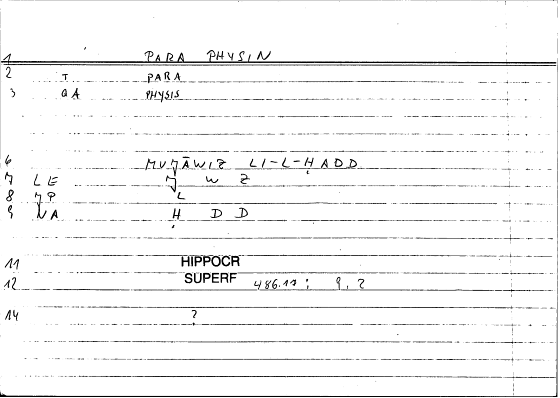 1 PARA PHYSIN
2 T PARA
3 QA PHYSIS
6 MUǦĀWIZ LI-L-ḤADD
7 LE Ǧ W Z
8 ǦP L
9 NA Ḥ D D
11 HIPPOCR
12 SUPERF 486.11; 9,2
14 ?